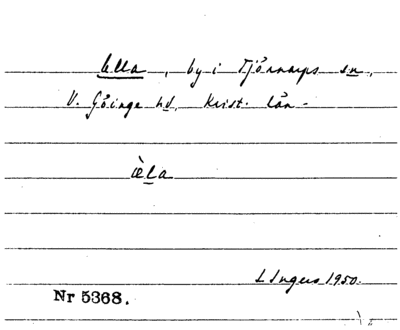 Ella, by i Tjörnarps sn,
V. Göinge hd. Krist. län.
èla
I Ingers 1950.
Nr 5368.